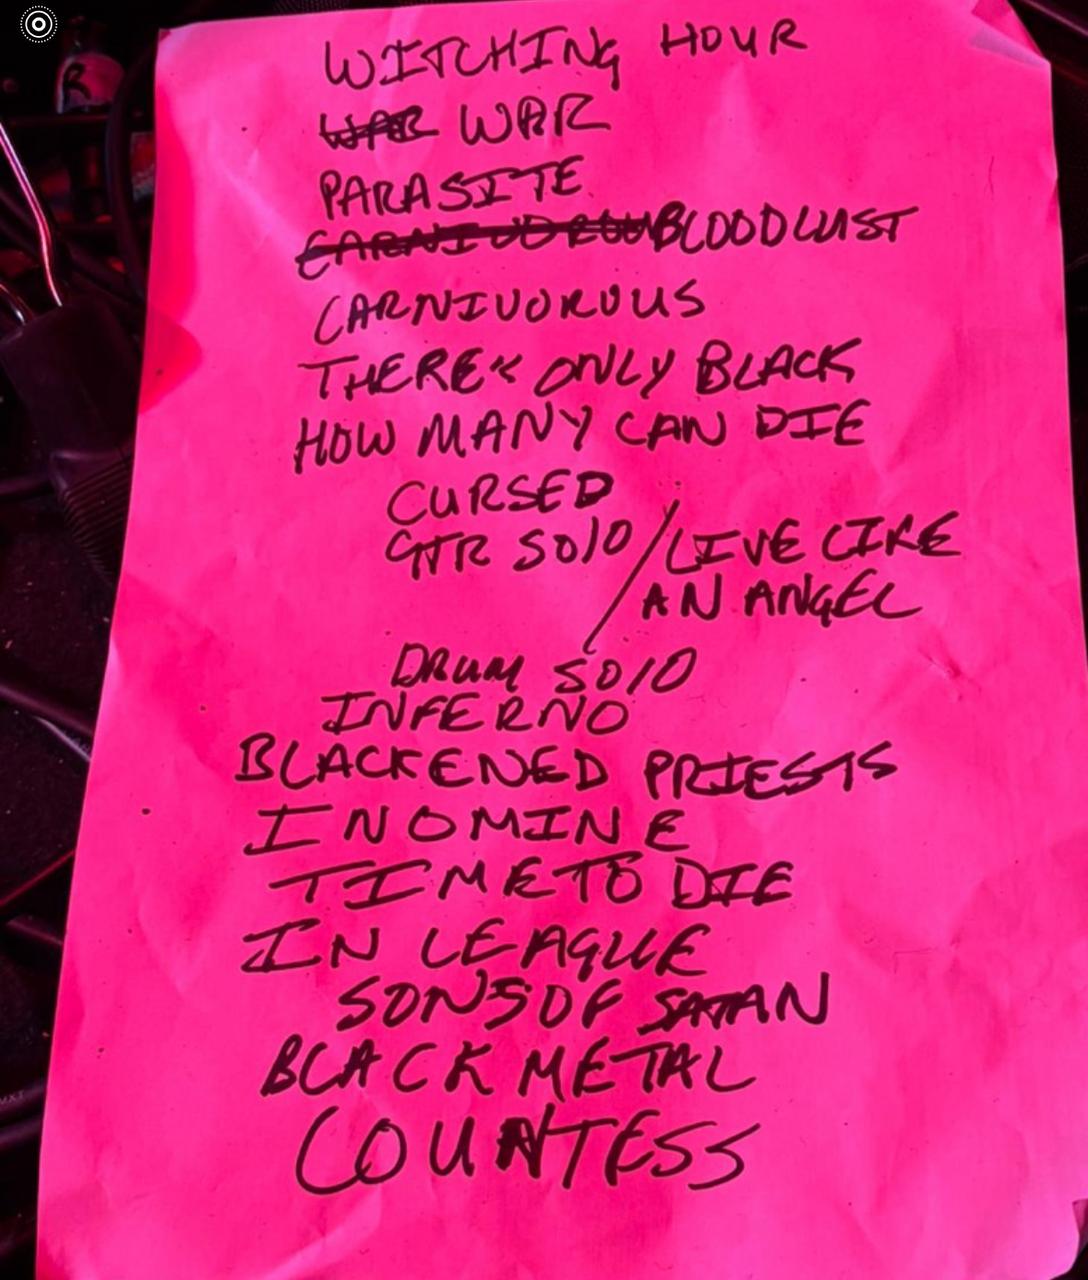 WITCHING HOUR
WAR WAR
PARASITE
BLOODLUST
CARNIVOROUS
THERE'S ONLY BLACK
HOW MANY CAN DIE
CURSED
GTR SOlO / LIVE LIKE
AN ANGEL
DRUM SOlO
INFERNO
BLACKENED PRIESTS
INOMINE
TIME TO DIE
IN LEAGUE
SONS OF SATAN
BLACK METAL
COUNTESS
R